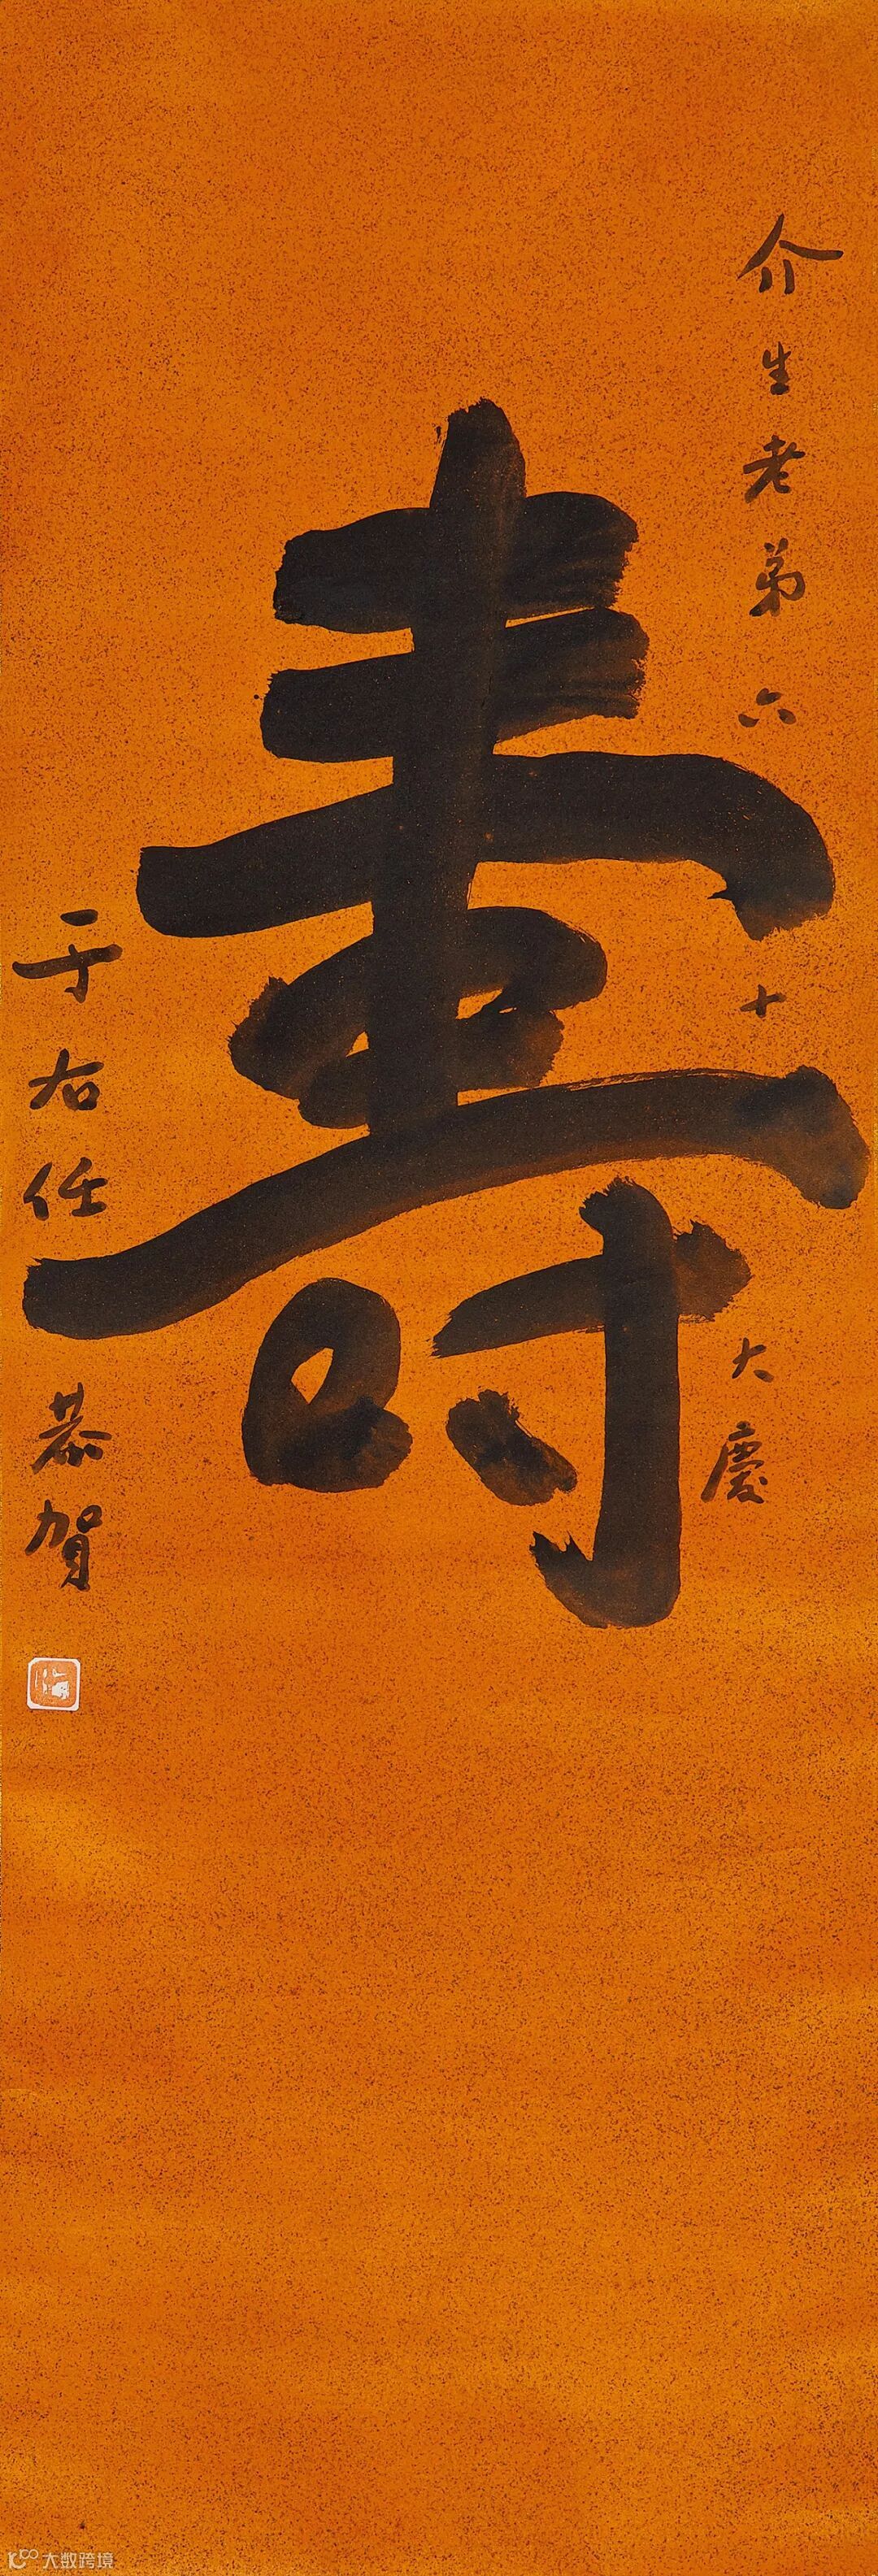 介生老弟六十大慶
壽
于右任恭賀
大数跨境